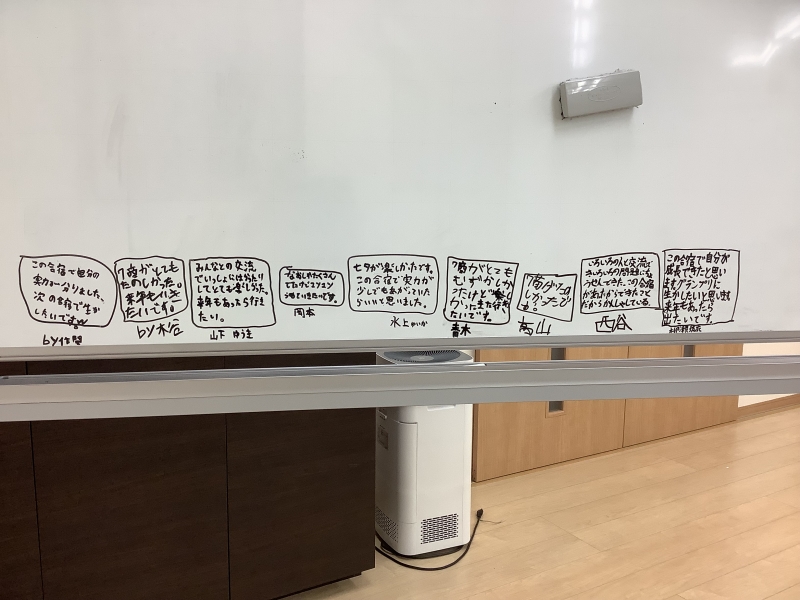 この合宿で自分の
実力になりました、
次の合宿で生か
したいです。
by作間
7商がとても
たのしかった。
来年もいき
たいです。
by木谷
みんなとの交流
でいっしょにはなしたり
してとても楽しかった。
来年もあったら行き
たい。
山下 ゆうき
たくさん
いきたいです。
岡本
七夕が楽しかったです。
この合宿で実力が
少しでも上がっていた
らいいと思いました。
水上
7商がとても
むずかしか
ったけど楽し
かったまた行き
たいです。
青木
しかったで
す。
山
いろいろな人と交流で
きいろいろな問題にち
ょうせんできた。この合宿
があったからできたこと
だからかんしゃしている。
西谷
この合宿で自分が
成長できたと思い
ますグランプリに
生かしたいと思います
来年もあったら
出たいです。